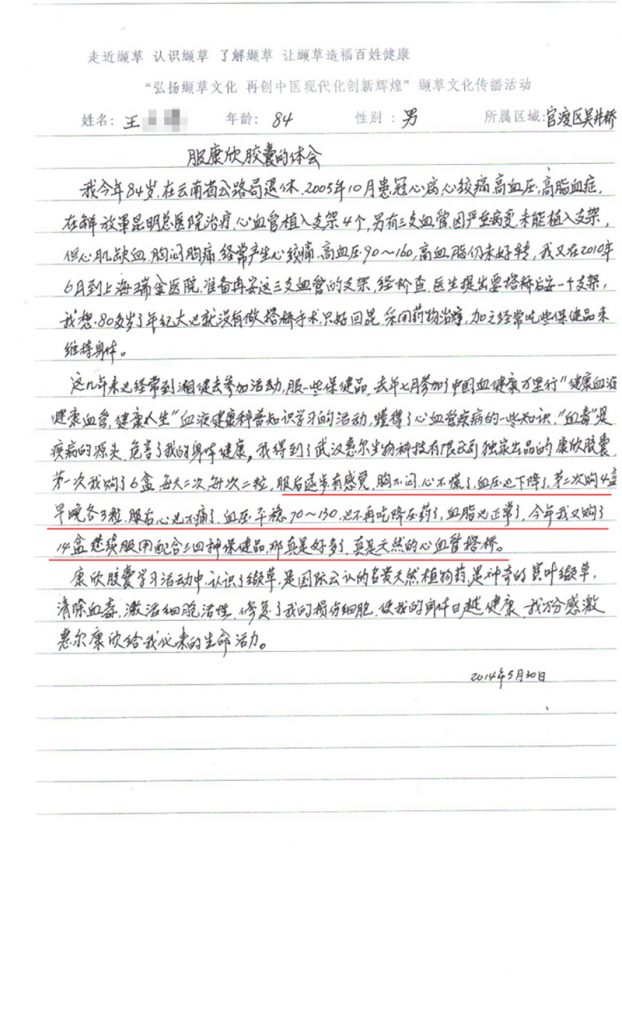 走近缬草 认识缬草 了解缬草 让缬草造福百姓健康
“弘扬缬草文化 再创中医现代化创新辉煌”缬草文化传播活动
姓名: 王 年龄: 84 性别: 男 所属区域: 官渡区吴井桥
服康欣胶囊的体会
我今年84岁,在云南省公路局退休,2005年10月患冠心病,心绞痛,高血压,高脂血症,
在解放军昆明总医院治疗,心血管植入支架4个,另有三支血管因严重病变未能植入支架,
但心肌缺血,胸闷胸痛,经常产生心绞痛,高血压90～160,高血脂仍未好转,我又在2010年
6月到上海瑞金医院,准备再安这三支血管的支架,经检查,医生提出要搭桥后安一个支架,
我想:80多岁了年纪大也就没有做搭桥手术,只好回昆,采用药物治疗,加之经常吃些保健品来
维持身体。
这几年来也经常到湘健去参加活动,服一些保健品,去年七月参加了中国血健康万里行“健康血液
健康血管,健康人生”血液健康科普知识学习的活动,懂得了心血管疾病的一些知识,“血毒”是
疾病的源头,危害了我的身体健康,我得到了武汉惠尔生物科技有限公司独家出品的康欣胶囊,
第一次我购了6盒,每天二次,每次二粒,服后逐步有感觉,胸不闷,心不慌了,血压也下降了,第二次购4盒
早晚各3粒,服后心也不痛了,血压平稳,70～130,也不再吃降压药了,血脂也正常了,今年我又购了
14盒继续服用配合三四种保健品,那真是好多了,真是天然的心血管搭桥。
康欣胶囊学习活动中,认识了缬草,是国际公认的名贵天然植物药,是神奇的宽叶缬草,
清除血毒,激活细胞活性,修复了我的损伤细胞,使我的身体日趋健康,我万分感激
惠尔康欣给我化来的生命活力。
2014年5月20日